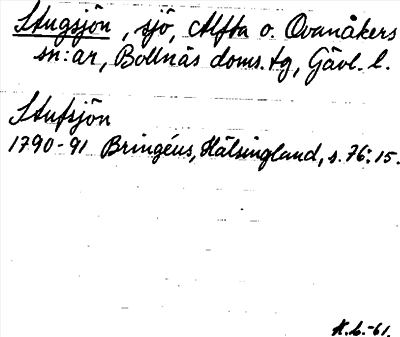 Stugsjön, sjö, Alfta o. Ovanåkers
sn:ar, Bollnäs doms.tg, Gävl. l.
Stufsjön
1790-91 Bringéus, Hälsingland, s. 76:15.
K.L.-61.